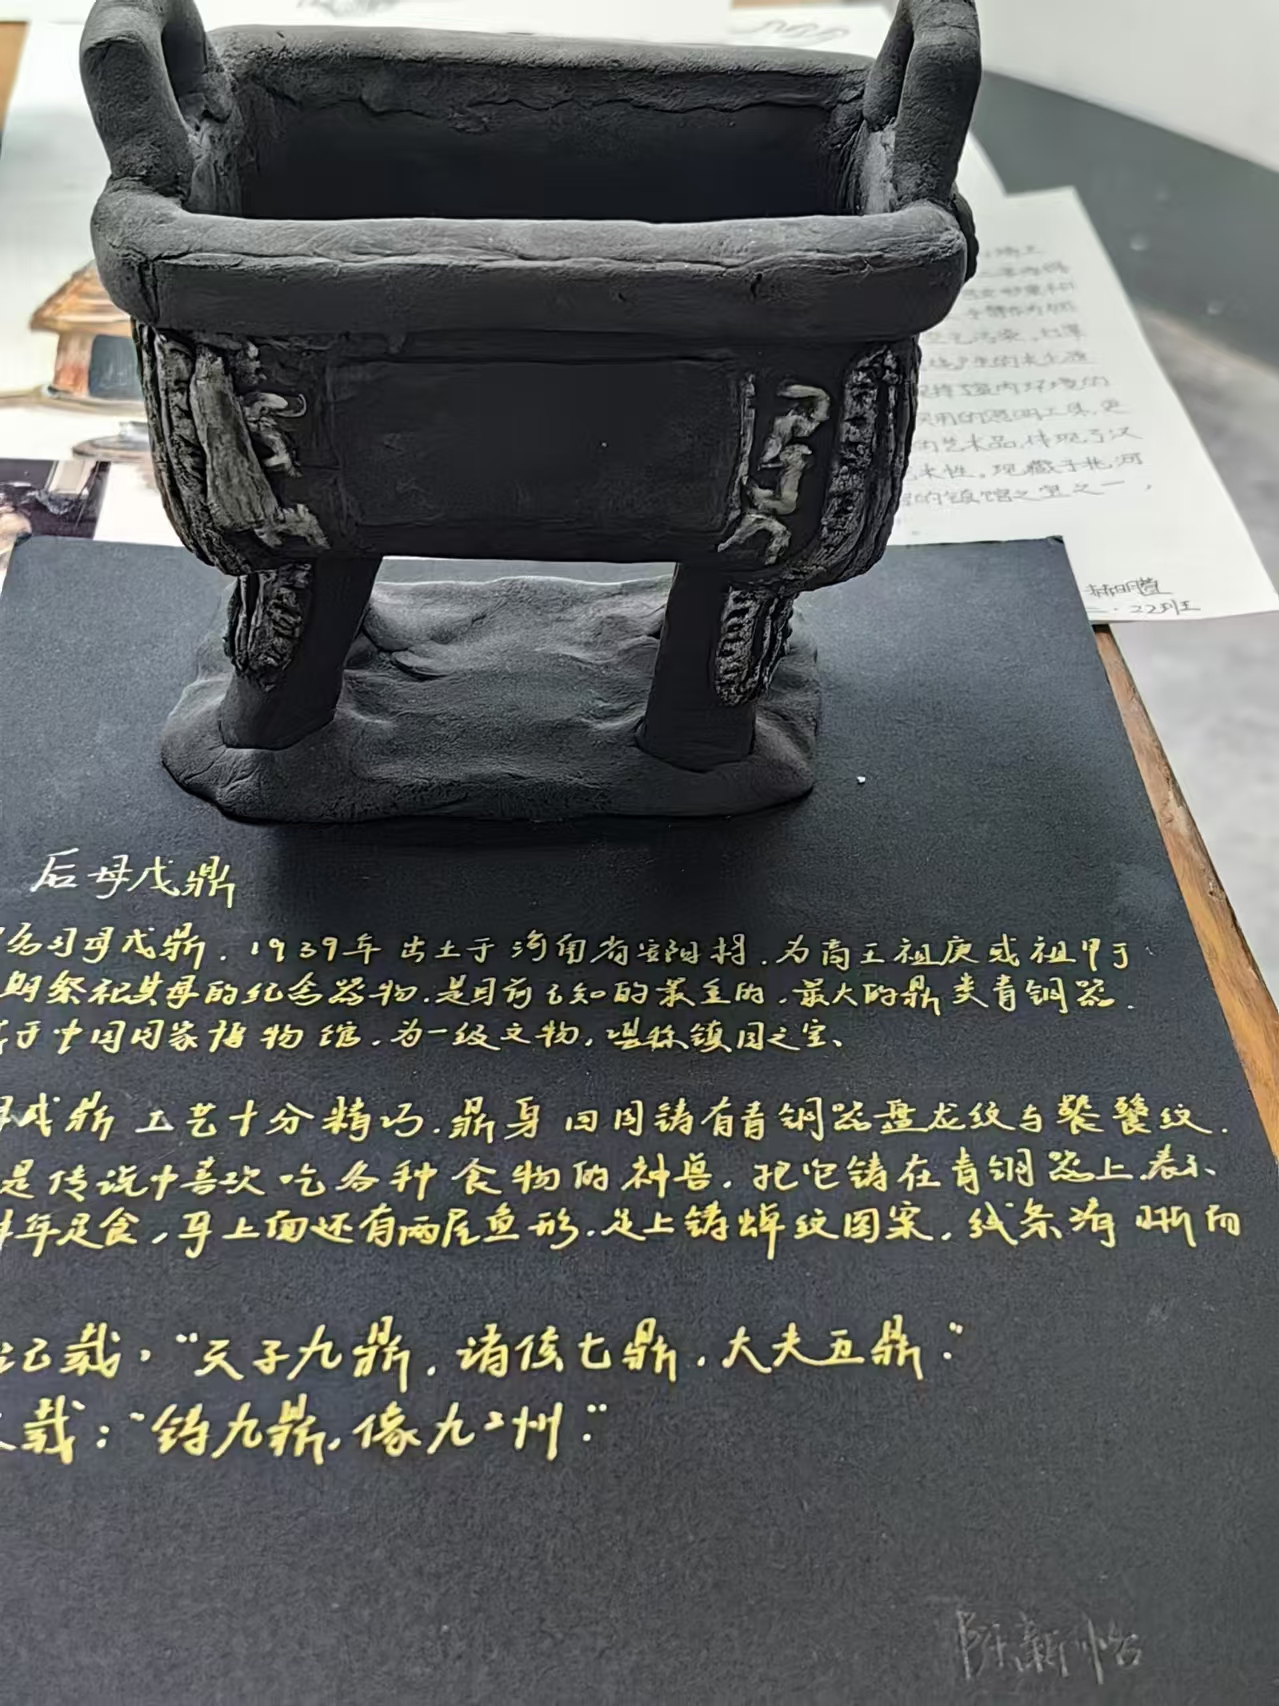 后母戊鼎
名司母戊鼎.1939年出土于河南省安阳村.为商王祖庚或祖甲于
期祭祀其母的纪念器物.是目前已知的最重的.最大的鼎类青铜器.
于中国国家博物馆.为一级文物,堪称镇国之宝、
母戊鼎工艺十分精巧.鼎身四周铸有青铜器盘龙纹与饕餮纹.
是传说中喜欢吃各种食物的神兽.把它铸在青铜器上表示
年足食,耳上面还有两尾鱼形.足上铸蝉纹图案.线条清晰而
记载,“天子九鼎.诸侯七鼎.大夫五鼎.”
载:“铸九鼎.像九州.”
陈新怡
艺污染
室内环境的
用的照明工具,更
的艺术品,体现了汉
术性.现藏于北河
的镇馆之宝之一,
郝明萱
22班